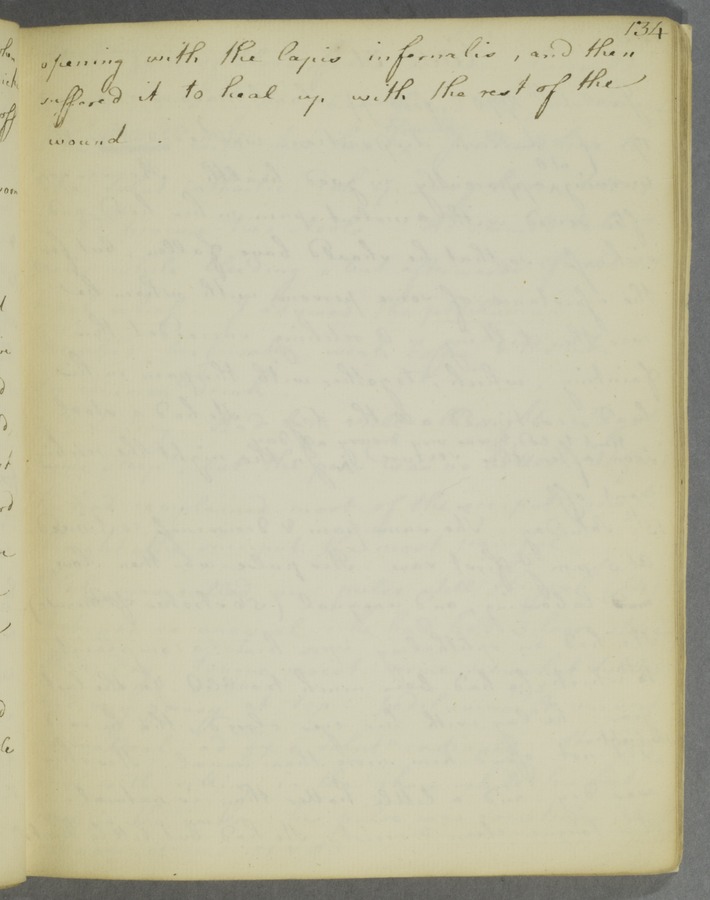 134
opening with the lapis infernalis, and then
suffered it to heal up with the rest of the
wound.